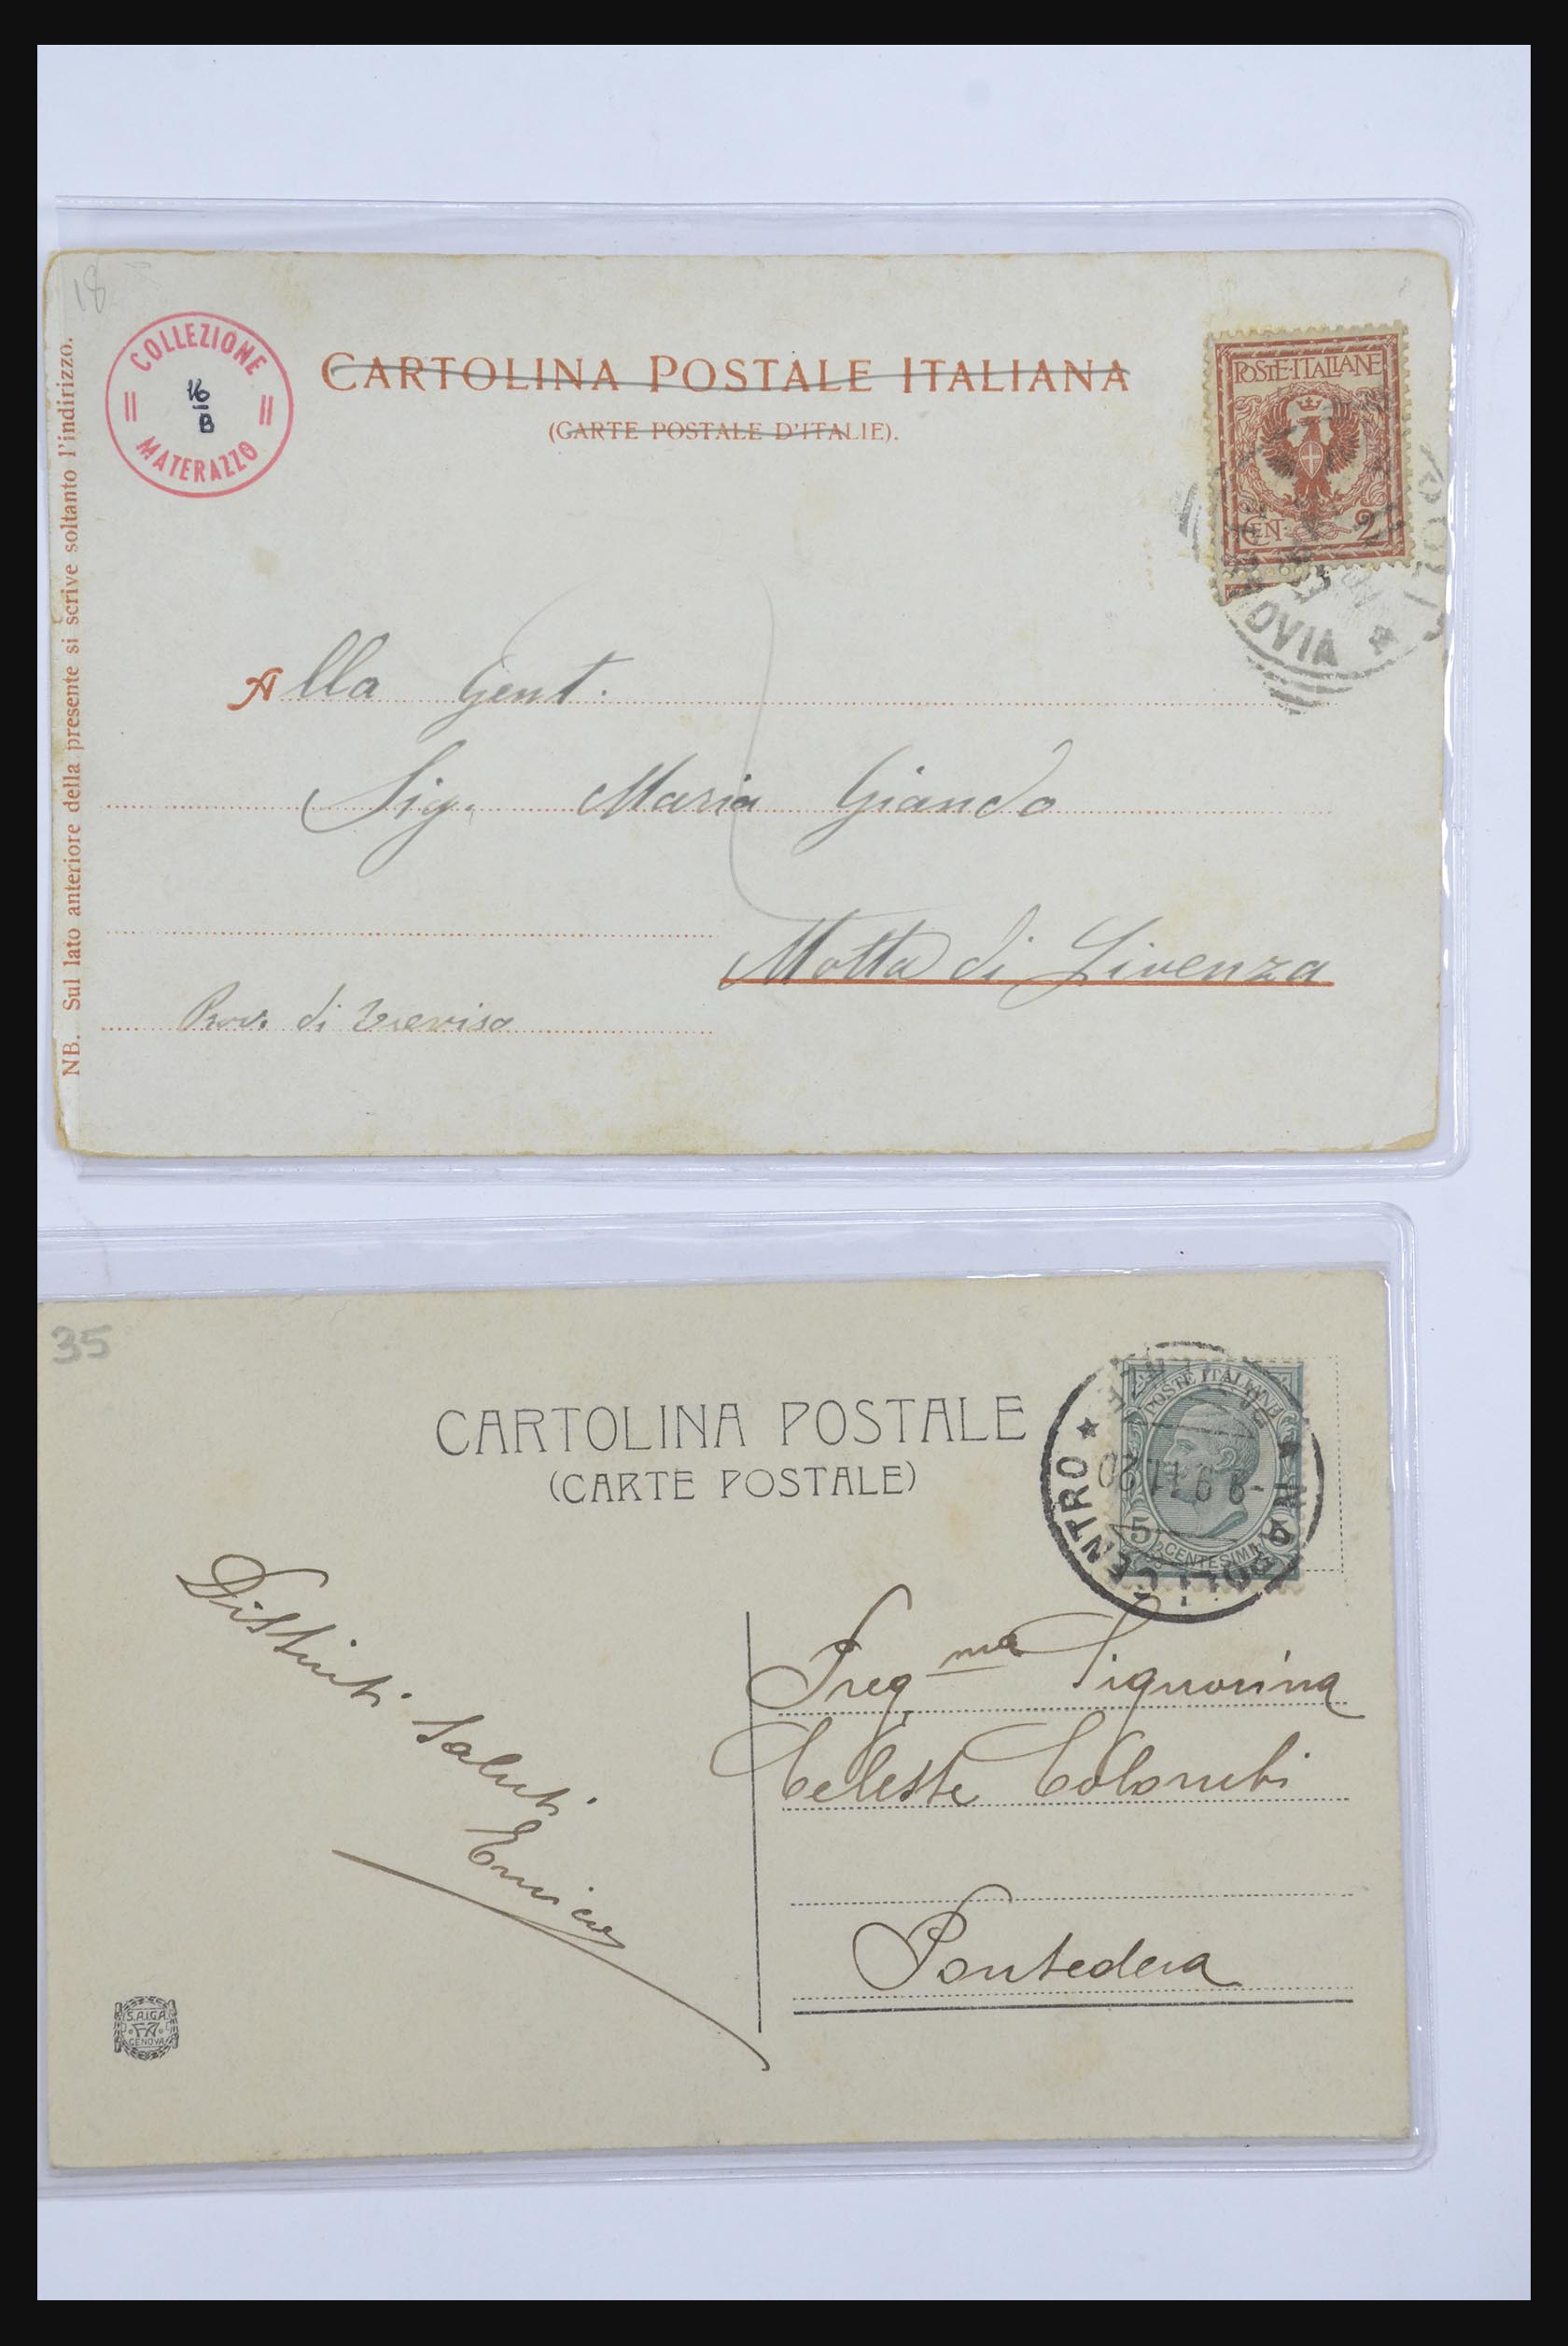 18
COLLEZIONE
16
B
MATERAZZO
CARTOLINA POSTALE ITALIANA
(CARTE POSTALE D'ITALIE).
NB. Sul lato anteriore della presente si scrive soltanto l'indirizzo.
POSTE·ITALIANE
CEN. 2
OVIA
Alla Gent.
Sig. Maria Giando
Motta di Livenza
Prov. di Treviso
35
CARTOLINA POSTALE
(CARTE POSTALE)
POSTE ITALIANE
5
CENTESIMI
CENTRO
Distinti Saluti
Enrico
Preg.ma Signorina
Celeste Colombi
Pontedera
S.A.I.G.A.
GENOVA